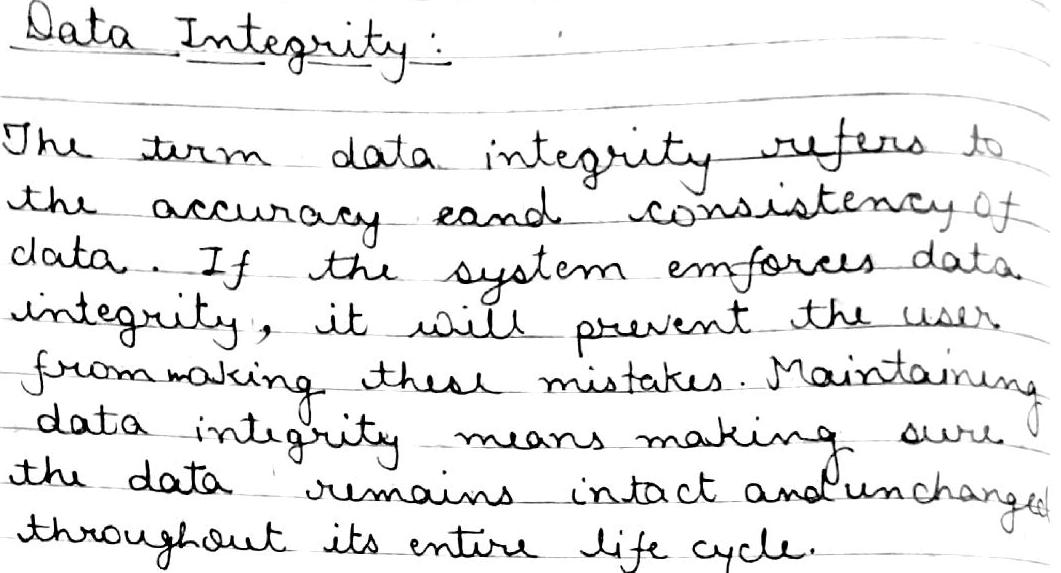 Data Integrity:
The term data integrity refers to
the accuracy eand consistency of
data. If the system emforces data
integrity, it will prevent the user
from making these mistakes. Maintaining
data integrity means making sure
the data remains intact and unchanged
throughout its entire life cycle.